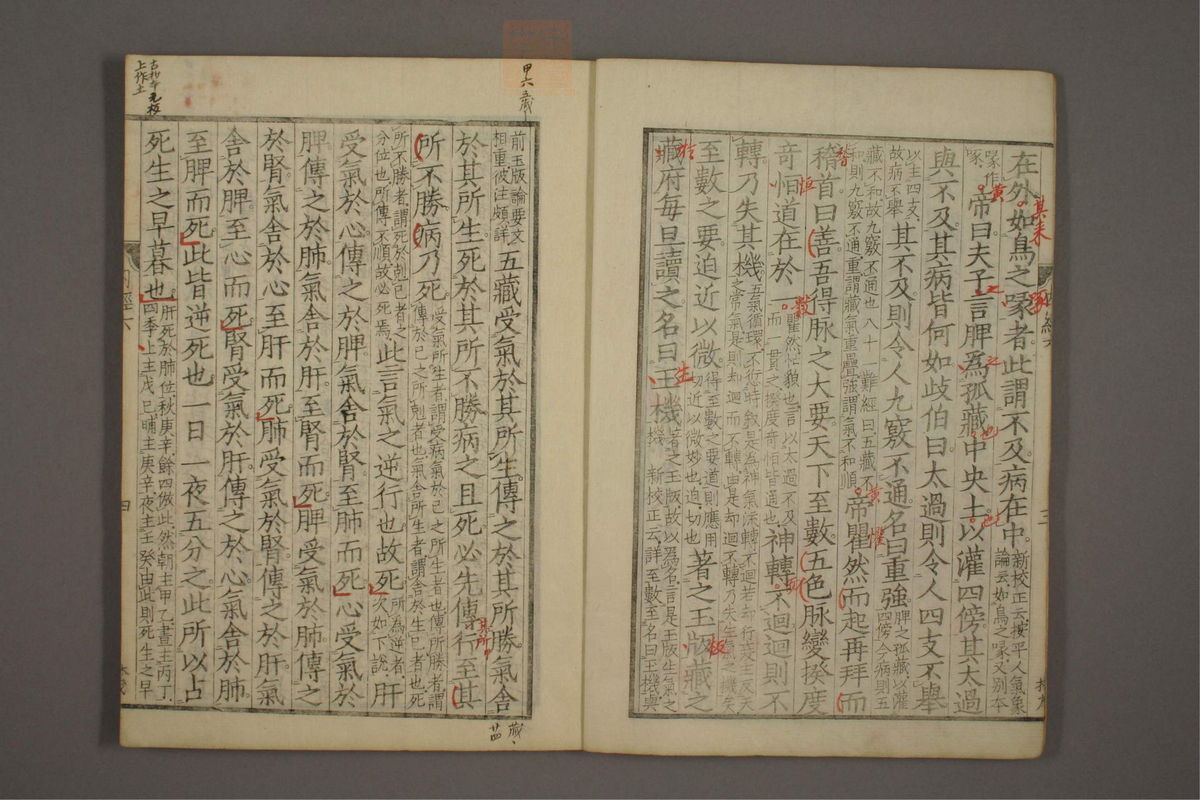 在外如鳥之喙者此謂不及病在中新校正云按平人氣象
論云如鳥之喙又別本
喙作
喙
帝曰夫子言脾爲孤藏中央土以灌四傍其太過
與不及其病皆何如歧伯曰太過則令人四支不舉
以主四支
故病不舉其不及則令人九竅不通名曰重強脾之孤藏以灌
四傍今病則五
藏不和故九竅不通也八十一難經曰五藏不
和則九竅不通重謂藏氣重疊強謂氣不和順帝瞿然而起再拜而
稽首曰善吾得脉之大要天下至數五色脉變揆度
奇恒道在於一瞿然忙貌也言以太過不及
而一貫之揆度奇恒皆通也神轉不迴迴則不
轉乃失其機五氣循環不愆時叙是爲神氣流轉不迴若却行衰王反天
之常氣是則却迴而不轉由是却迴不轉乃失生氣之機矣
至數之要迫近以微得至數之要道則應用
切近以微妙也迫切也著之玉版藏之
藏府每旦讀之名曰玉機著之玉版故以爲名言是玉版生氣之
機 新校正云詳至數至名曰玉機與
前玉版論要文
相重彼注頗詳五藏受氣於其所生傳之於其所勝氣舍
於其所生死於其所不勝病之且死必先傳行至其
所不勝病乃死受氣所生者謂受病氣於己之所生者也傳所勝者謂
傳於己之所剋者也氣舍所生者謂舍於生己者也死
所不勝者謂死於剋己者之
分位也所傳不順故必死焉此言氣之逆行也故死所爲逆者
次如下說肝
受氣於心傳之於脾氣舍於腎至肺而死心受氣於
脾傳之於肺氣舍於肝至腎而死脾受氣於肺傳之
於腎氣舍於心至肝而死肺受氣於腎傳之於肝氣
舍於脾至心而死腎受氣於肝傳之於心氣舍於肺
至脾而死此皆逆死也一日一夜五分之此所以占
死生之早暮也肝死於肺位秋庚辛餘四倣此然朝主甲乙晝主丙丁
四季上主戊己晡主庚辛夜主壬癸由此則死生之早
甲六 五藏
内經六
四